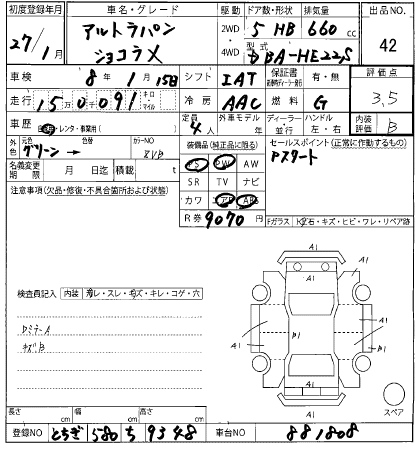 初度登録年月 車名・グレード 駆動 ドア数・形状 排気量 出品NO.
27年1月 アルトラパン ショコラX 2WD 4WD 5 HB 660cc 42
型式 DBA-HE22S
車検 8年1月15日 シフト IAT 保証書 有・無 評価点 3,5
走行 150,091 キロ マイル 冷房 AAC 燃料 G
車歴 自家用・レンタ・事業用( ) 定員 4人 外車モデル 年 ディーラー・並行 ハンドル 左・右 内装評価 B
外色 元色 グリーン→ 色替 カラーNO ZVB
装備品(純正品に限る) セールスポイント(正常に動作するもの)
PS PW AW Pスタート
名義変更期限 月 日迄 積載 t SR TV ナビ
注意事項(欠品・修復・不具合箇所および状態) カワ エアB ABS
R券 9070円 Fガラス 飛石・キズ・ヒビ・ワレ・リペア跡
A1
A1 A1
検査員記入 内装 汚レ・スレ・キズ・キレ・コゲ・穴
キズB
A1 B1 A1
A1
スペア
長さ cm 幅 cm 高さ cm
登録NO とちぎ 580 ち 9348 車台NO 881808